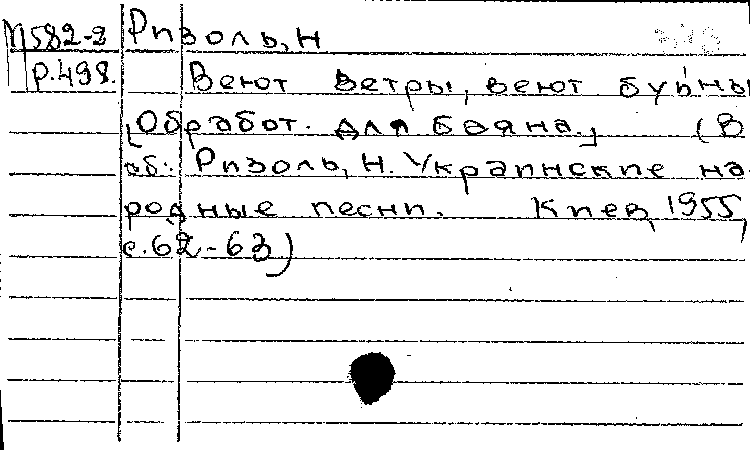 М582-2 Ризоль, Н
р.498. Веют ветры, веют буйны
[Обработ. для баяна.] (В
сб: Ризоль, Н. Украинские на-
родные песни. Киев, 1955,
с.62-63)